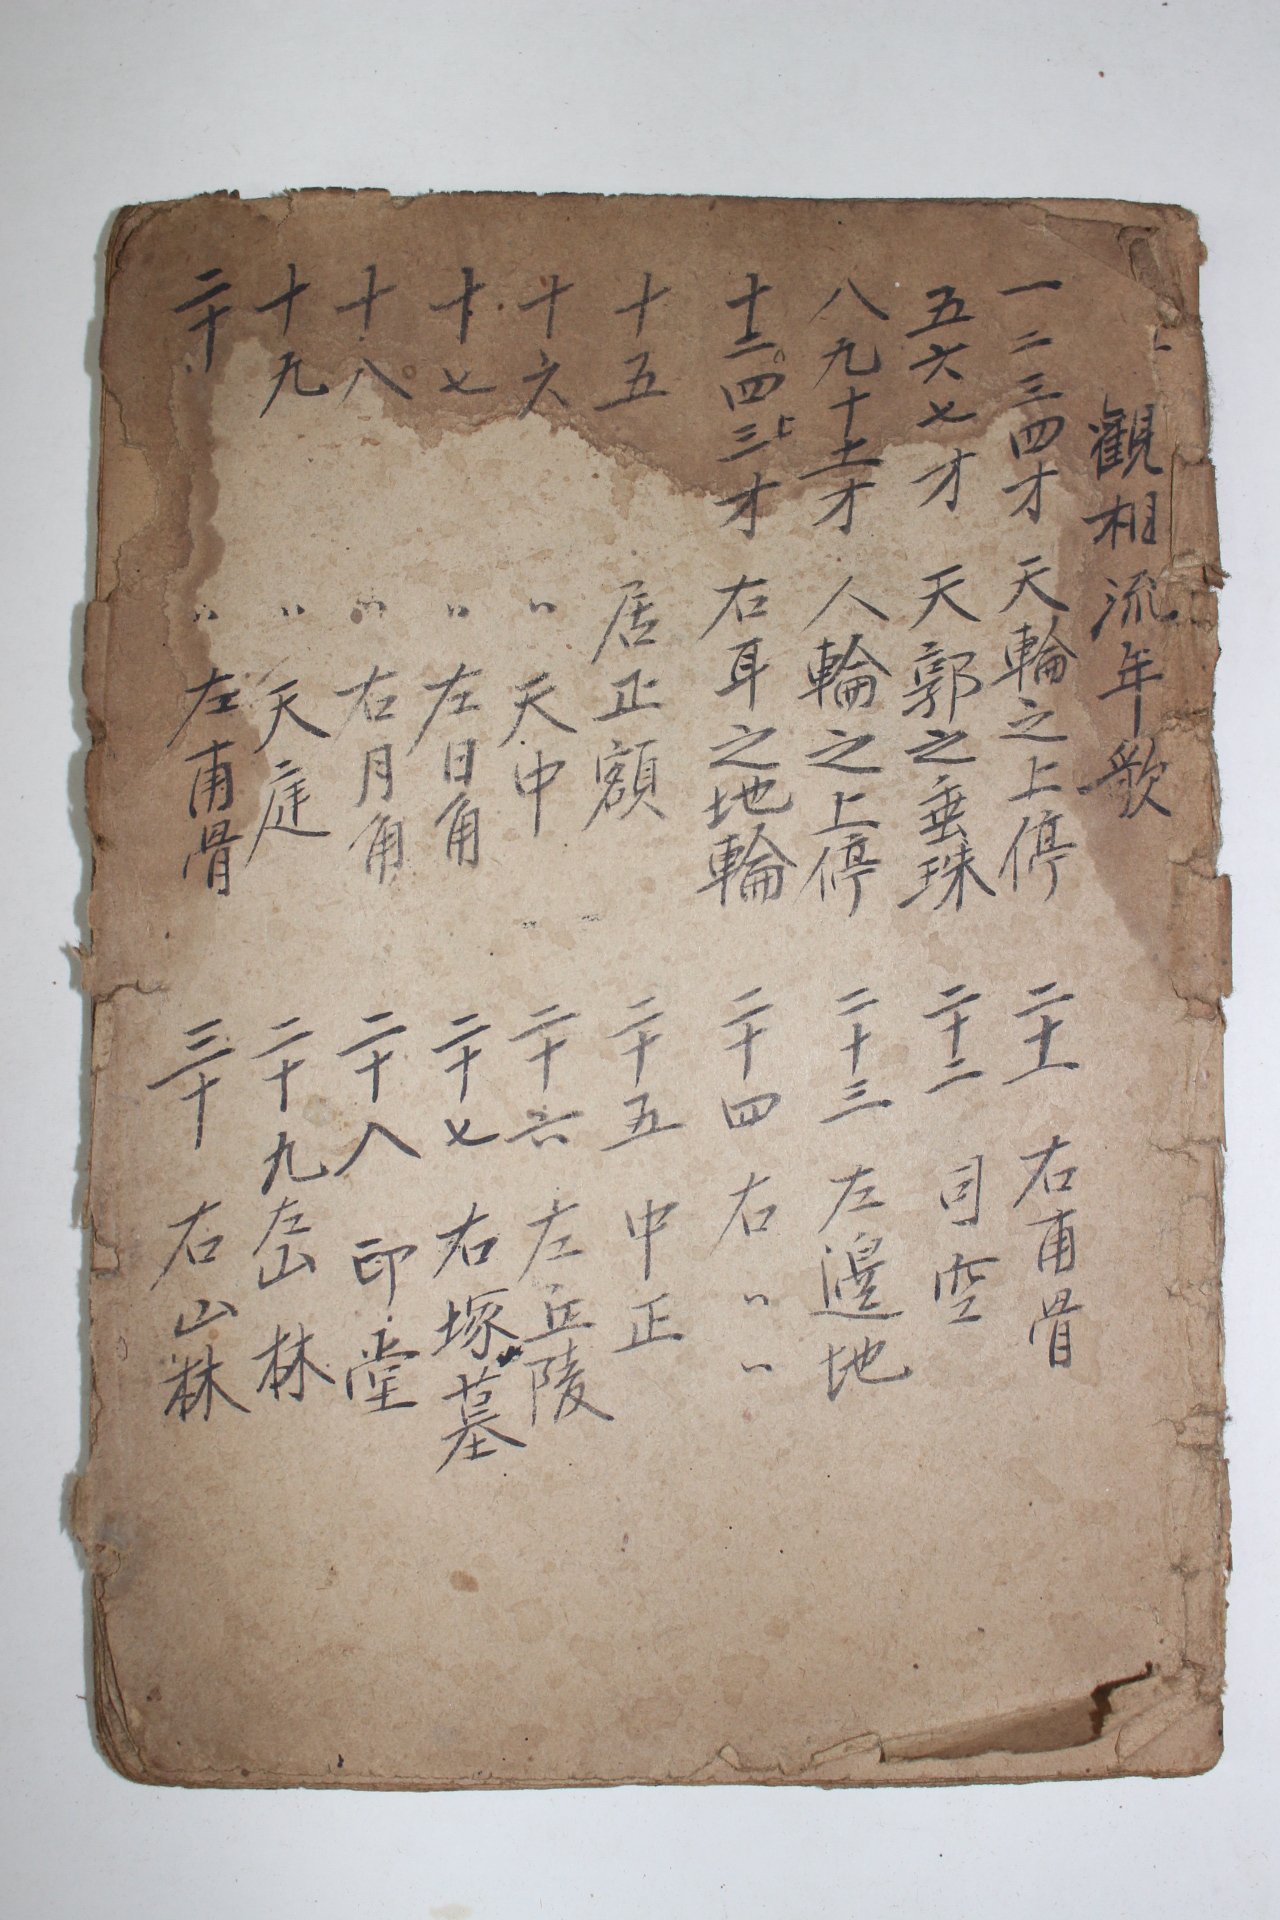 觀相流年歌
一二三四才 天輪之上停 二十一 右甫骨
五六七才 天郭之垂珠 二十二 司空
八九十十一才 人輪之上停 二十三 左邊地
十二四三才 右耳之地輪 二十四 右〃〃
十五 居正額 二十五 中正
十六 〃天中 二十六 左丘陵
十七 〃左日角 二十七 右塚墓
十八 〃右月角 二十八 印堂
十九 〃天庭 二十九 左山林
二十 〃左甫骨 三十 右山林